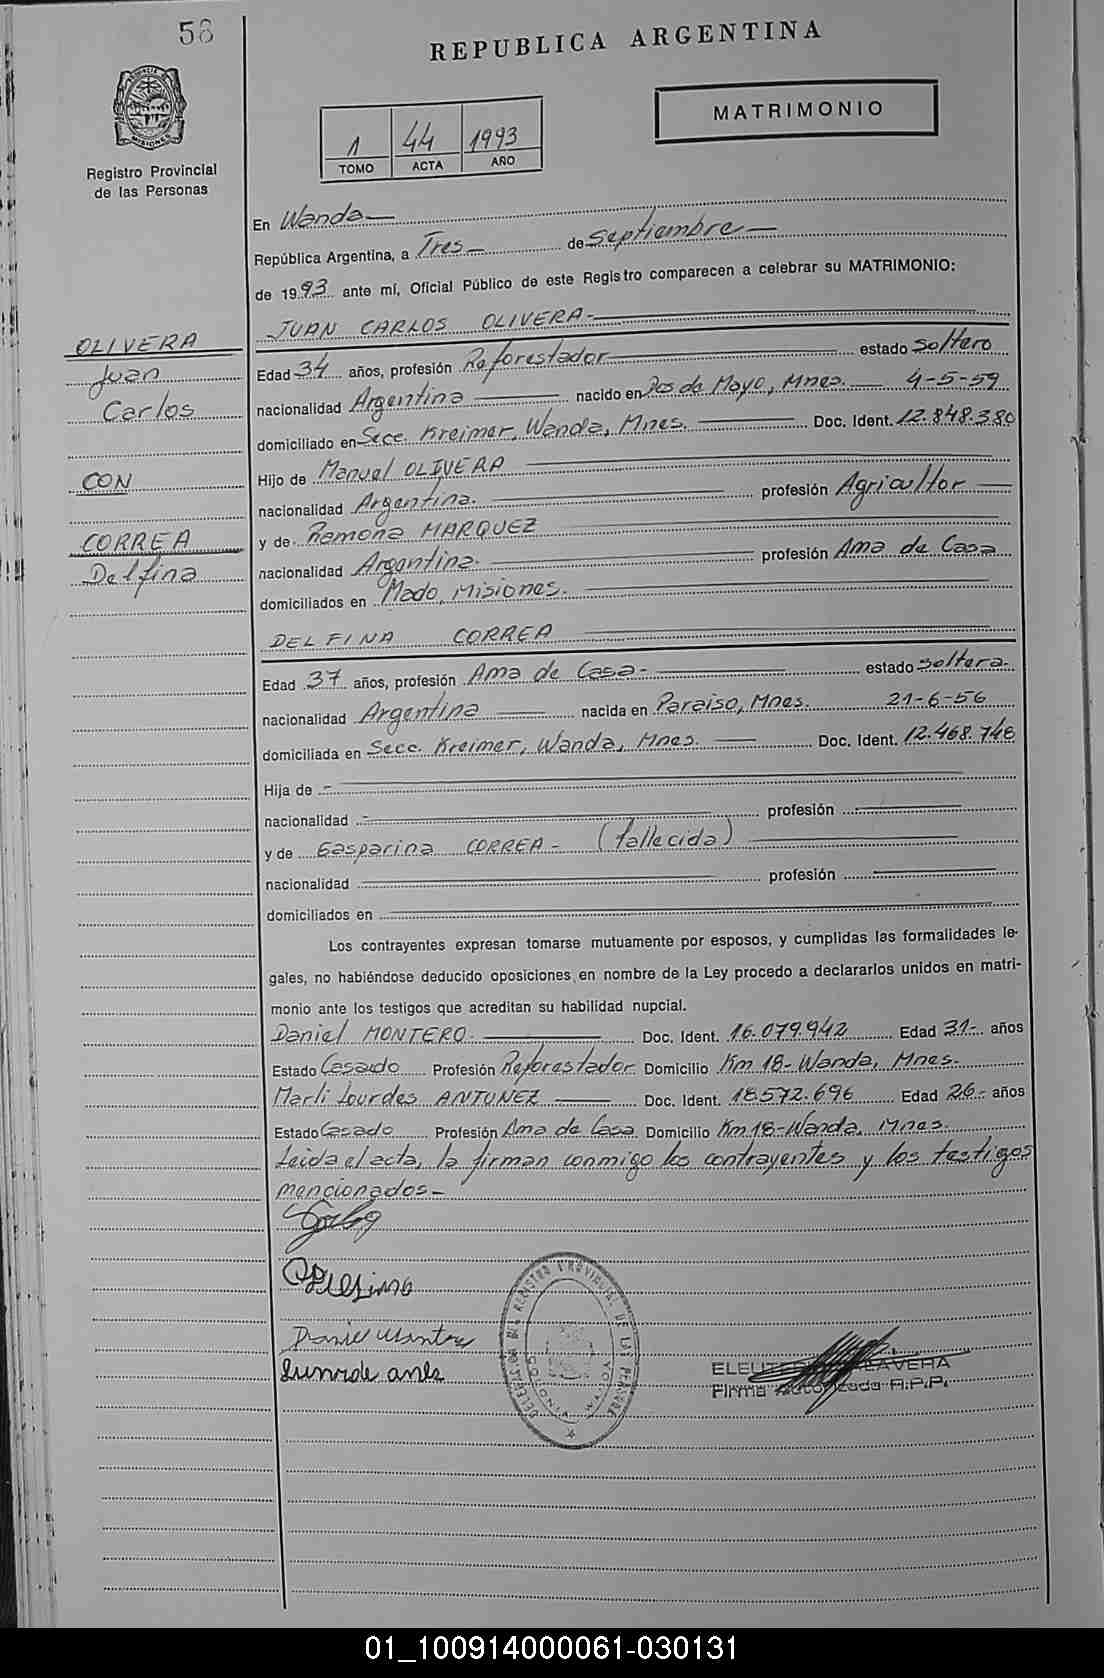 58
REPUBLICA ARGENTINA
PROVINCIA DE
MISIONES
Registro Provincial
de las Personas
1 44 1993
TOMO ACTA AÑO
MATRIMONIO
En Wanda
República Argentina, a Tres de Septiembre
de 1993 ante mí, Oficial Público de este Registro comparecen a celebrar su MATRIMONIO:
JUAN CARLOS OLIVERA
OLIVERA
Juan
Carlos
CON
CORREA
Delfina
Edad 34 años, profesión Reforestador estado soltero
nacionalidad Argentina nacido en Dos de Mayo, Mnes. 4-5-59
domiciliado en Secc. Kreimer, Wanda, Mnes. Doc. Ident. 12.848.380
Hijo de Manuel OLIVERA
nacionalidad Argentina. profesión Agricultor
y de Ramona MARQUEZ
nacionalidad Argentina. profesión Ama de Casa
domiciliados en Mado, Misiones.
DELFINA CORREA
Edad 37 años, profesión Ama de Casa estado soltera
nacionalidad Argentina nacida en Paraiso, Mnes. 21-6-56
domiciliada en Secc. Kreimer, Wanda, Mnes. Doc. Ident. 12.468.748
Hija de
nacionalidad profesión
y de Gasparina CORREA - (fallecida)
nacionalidad profesión
domiciliados en
Los contrayentes expresan tomarse mutuamente por esposos, y cumplidas las formalidades le-
gales, no habiéndose deducido oposiciones en nombre de la Ley procedo a declararlos unidos en matri-
monio ante los testigos que acreditan su habilidad nupcial.
Daniel MONTERO. Doc. Ident. 16.079.942 Edad 31- años
Estado Casado Profesión Reforestador Domicilio Km 18-Wanda, Mnes.
Marli Lourdes ANTUNEZ Doc. Ident. 18.572.696 Edad 26- años
Estado Casado Profesión Ama de Casa Domicilio Km 18-Wanda, Mnes.
Leida el acta, la firman conmigo los contrayentes y los testigos
mencionados-
Daniel
DELEGACION DEL REGISTRO PROVINCIAL DE LAS PERSONAS
COLONIA WANDA
Firma Autorizada R.P.P.
01_100914000061-030131